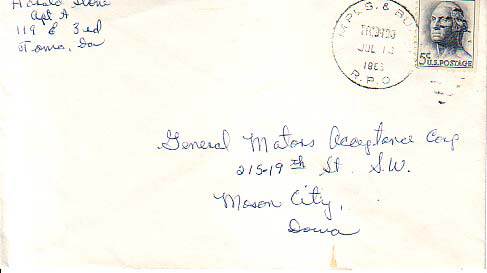 Harold Stone
Apt A
119 E 3rd
Iowa
MPLS. & 
JUL 13
R.P.O
5¢ U.S. POSTAGE
General Motors Acceptance Corp
215-19th St. S.W.
Mason City,
Iowa